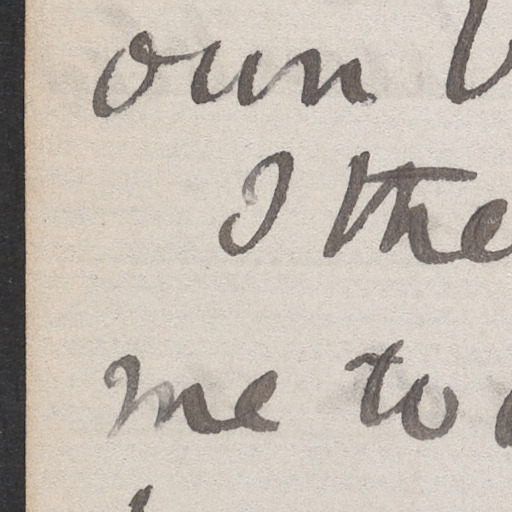 own
I the
me to